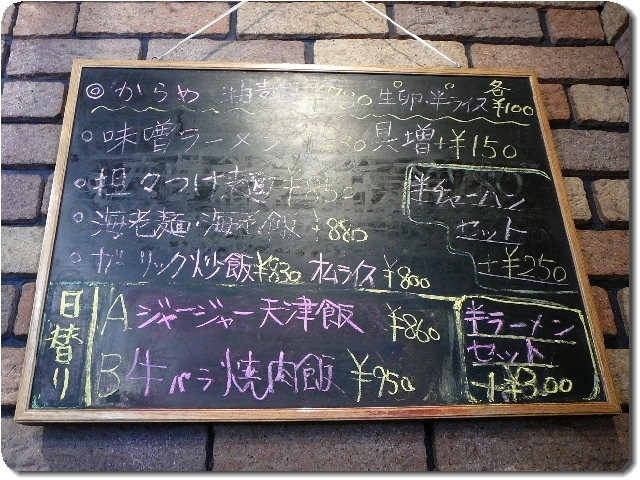 ◎からめ 油麺 ¥780 生卵・半ライス 各¥100
○味噌ラーメン 具増+¥150
○担々つけ麺 ¥850
○海老麺・海老飯 ¥880
○ガーリック炒飯¥830 オムライス¥800
半チャーハン
セット
+¥250
日替り
A ジャージャー天津飯 ¥860
B 牛バラ焼肉飯 ¥950
半ラーメン
セット
+¥300